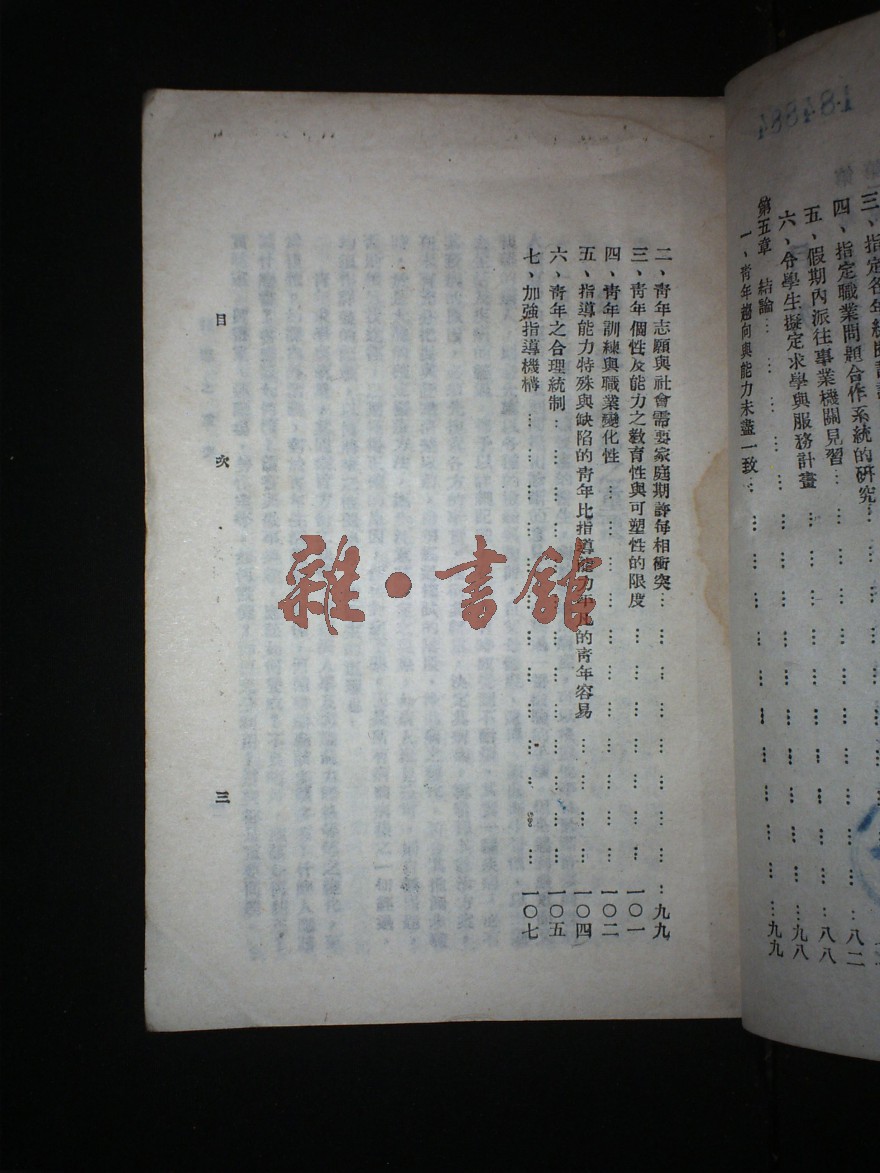 184884
三、指定各年級
四、指定職業問題合作系統的研究…………八二
五、假期內派往事業機關見習…………八八
六、令學生擬定求學與服務計畫…………九八
第五章 結論…………九九
一、靑年趨向與能力未盡一致…………
二、靑年志願與社會需要家庭期許每相衝突…………九九
三、靑年個性及能力之敎育性與可塑性的限度…………一〇一
四、靑年訓練與職業變化性…………一〇二
五、指導能力特殊與缺陷的靑年比指導能力平凡的靑年容易…………一〇四
六、靑年之合理統制…………一〇五
七、加強指導機構…………一〇七
目 次 三
雜·書館